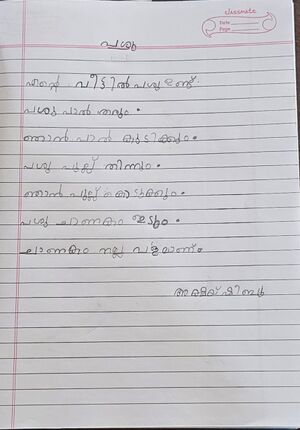 classmate
Date
Page
പശു
എന്റെ വീട്ടിൽ പശു ഉണ്ട്.
പശു പാൽ തരും.
ഞാൻ പാൽ കുടിക്കും.
പശു പുല്ല് തിന്നും.
ഞാൻ പുല്ല് കൊടുക്കും.
പശു ചാണകം ഇടും.
ചാണകം നല്ല വളമാണ്.